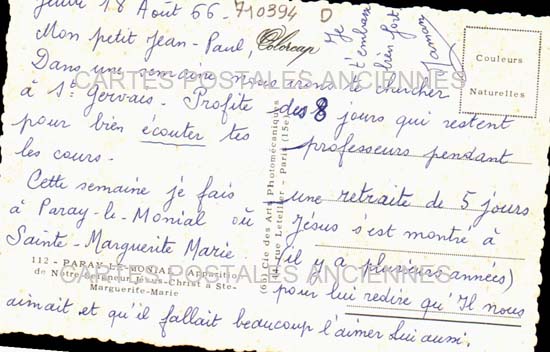 Jeudi 18 Août 66 - 710394 D
Mon petit Jean-Paul,
Dans une semaine nous irons te chercher
à St Gervais. Profite des 8 jours qui restent
pour bien écouter tes professeurs pendant
les cours.
Cette semaine je fais une retraite de 5 jours
à Paray-le-Monial où Jésus s'est montré à
Sainte-Marguerite Marie (il y a plusieurs années)
pour lui redire qu'Il nous
aimait et qu'il fallait beaucoup l'aimer Lui aussi.
Je
t'embrasse
bien fort
Maman
Colorcap
Couleurs
Naturelles
(66) Cie des Arts Photomécaniques
44, rue Letellier - Paris (15e)
112 - PARAY-LE-MONIAL - Apparition
de Notre-Seigneur Jésus-Christ à Ste-
Marguerite-Marie
CARTES POSTALES ANCIENNES
CARTES POSTALES ANCIENNES